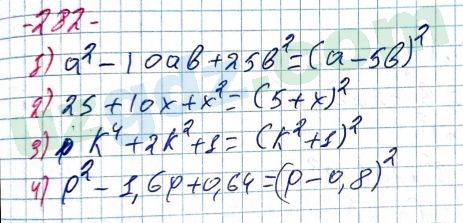 -282-
1) a² - 10ab + 25b² = (a - 5b)²
2) 25 + 10x + x² = (5 + x)²
3) k⁴ + 2k² + 1 = (k² + 1)²
4) p² - 1,6p + 0,64 = (p - 0,8)²